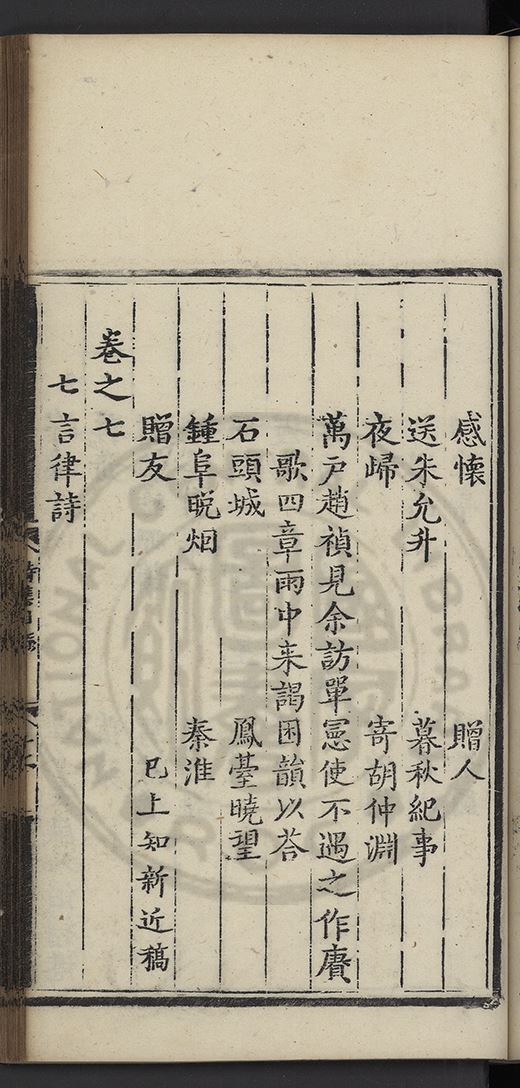 感懷　贈人
送朱允升　暮秋紀事
夜歸　寄胡仲淵
萬戶趙禎見余訪單憲使不遇之作賡
歌四章雨中来謁因韻以荅
石頭城　鳳臺曉望
鍾阜晩烟　秦淮
贈友　已上知新近稿
卷之七
七言律詩